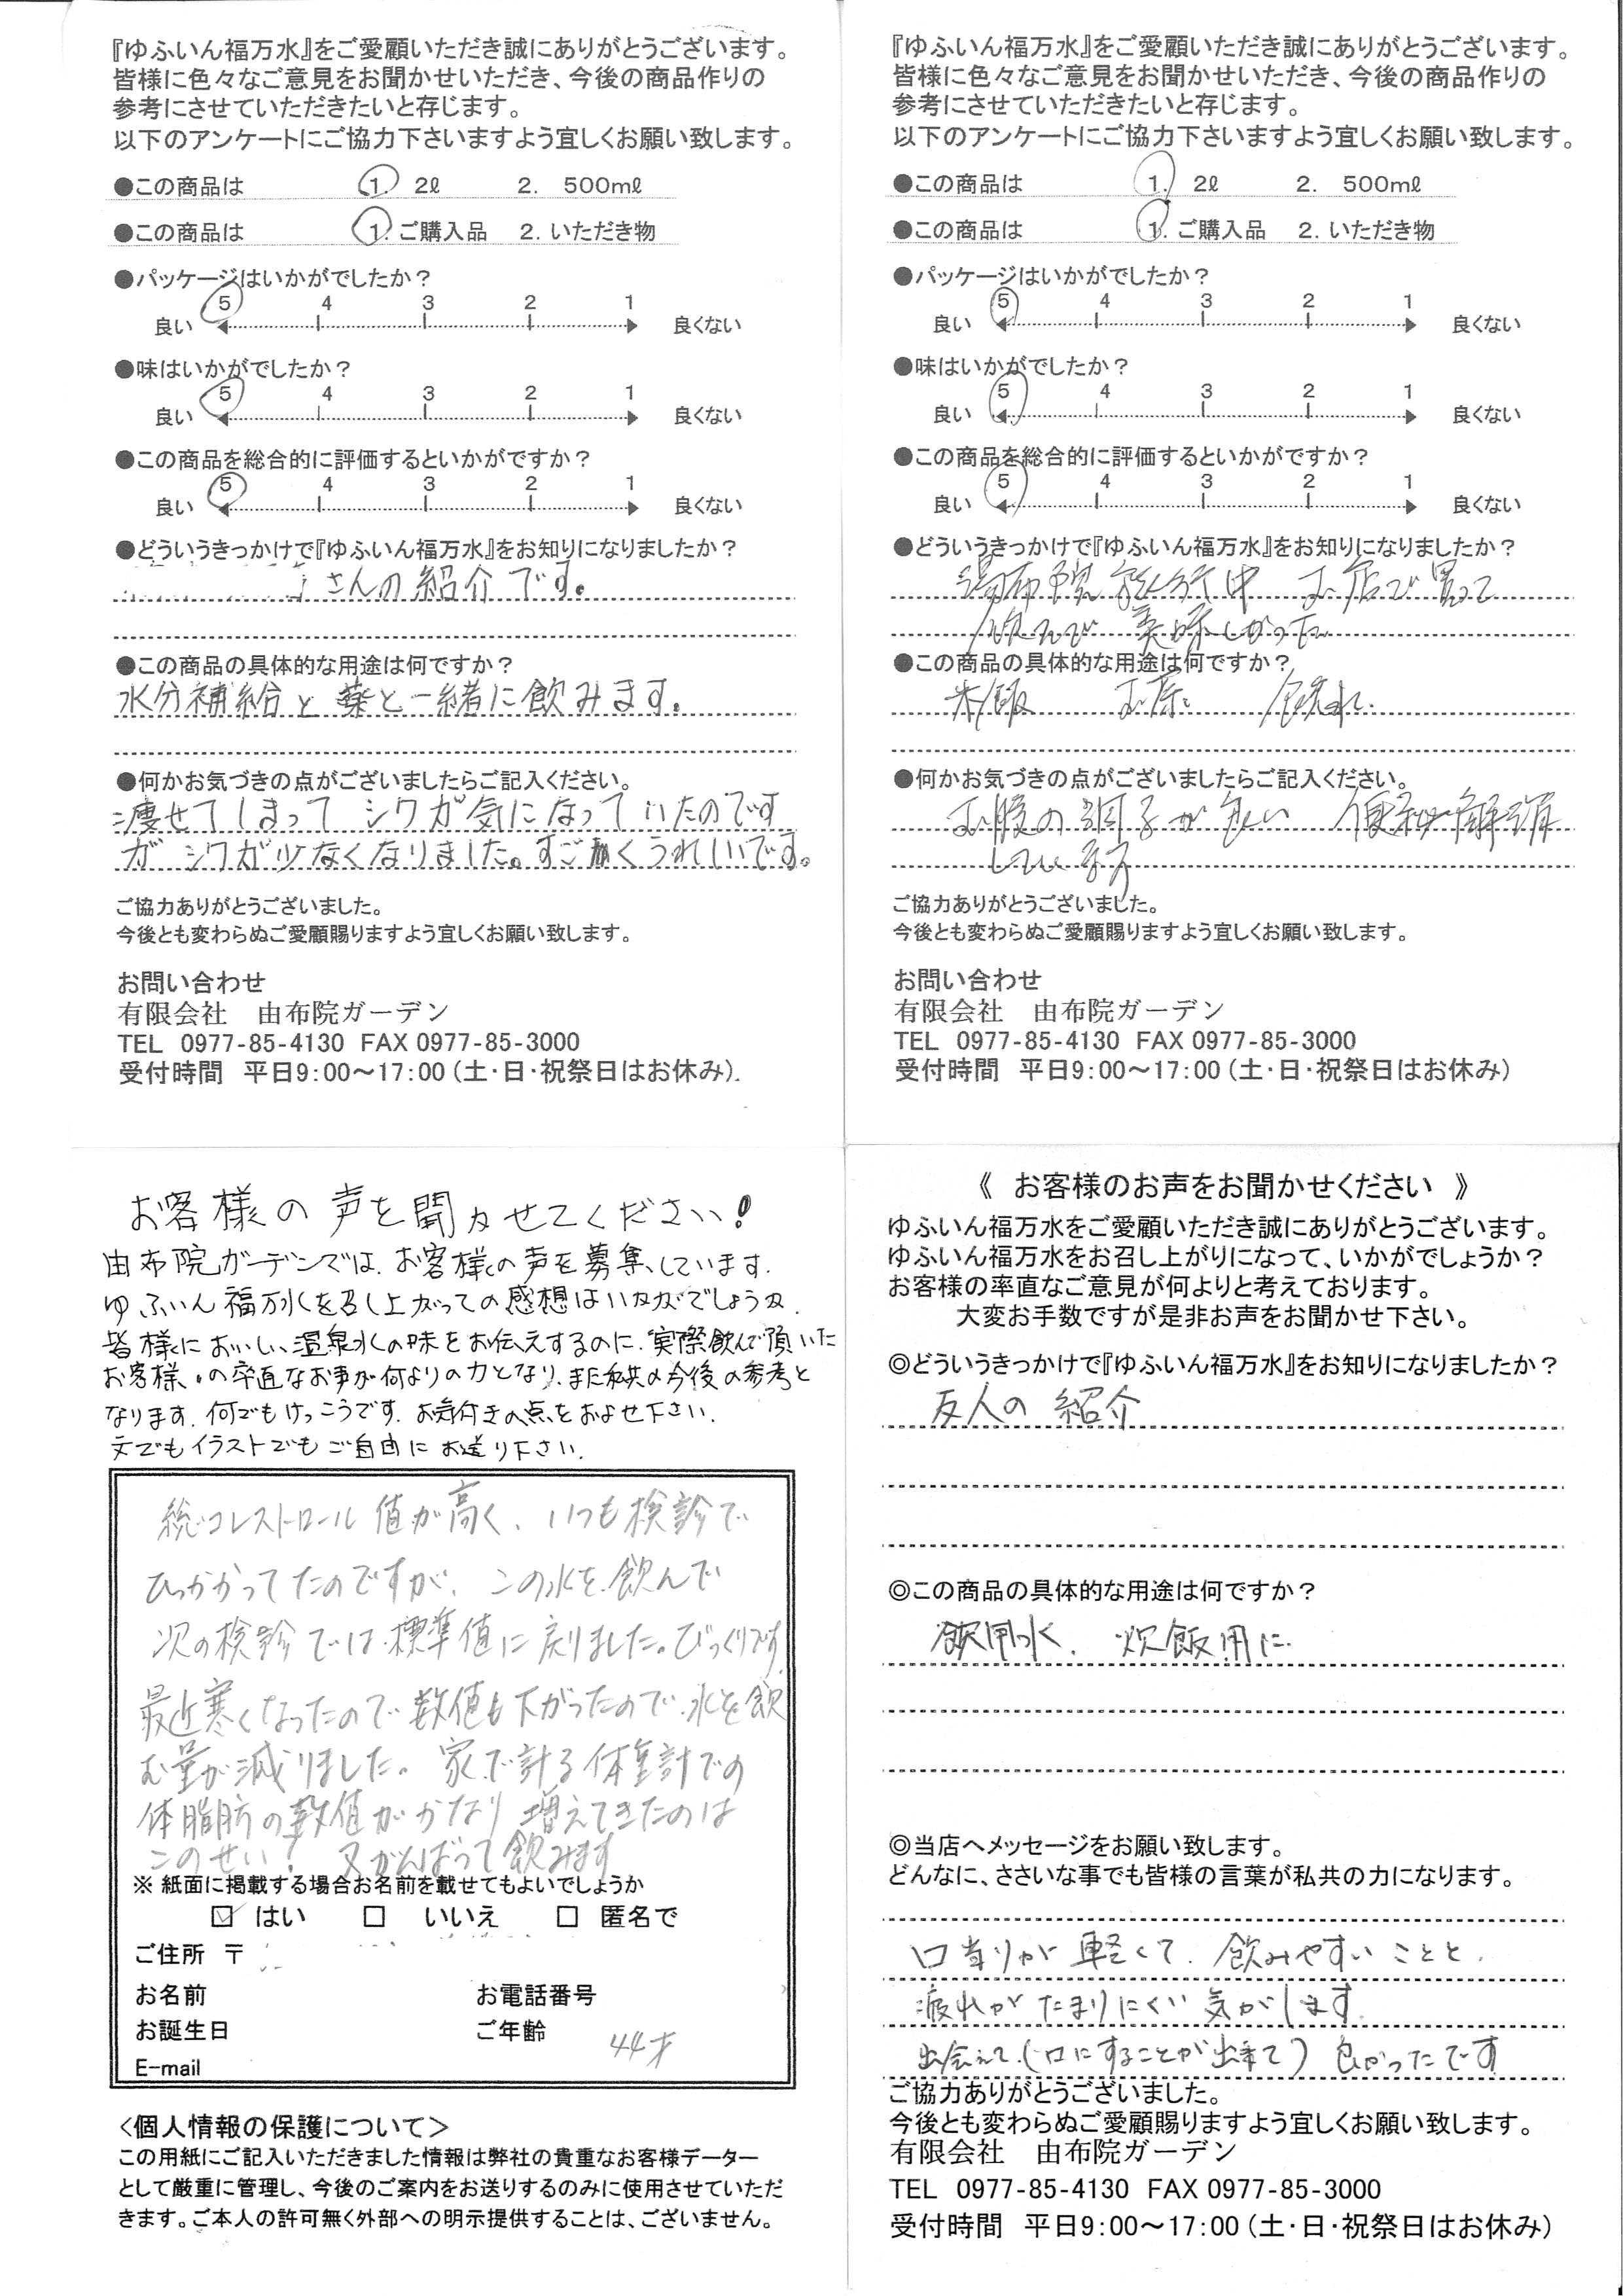 『ゆふいん福万水』をご愛顧いただき誠にありがとうございます。
皆様に色々なご意見をお聞かせいただき、今後の商品作りの
参考にさせていただきたいと存じます。
以下のアンケートにご協力下さいますよう宜しくお願い致します。
●この商品は 1. 2ℓ 2. 500mℓ
●この商品は 1. ご購入品 2. いただき物
●パッケージはいかがでしたか？
5 4 3 2 1
良い 良くない
●味はいかがでしたか？
5 4 3 2 1
良い 良くない
●この商品を総合的に評価するといかがですか？
5 4 3 2 1
良い 良くない
●どういうきっかけで『ゆふいん福万水』をお知りになりましたか？
さんの紹介です。
●この商品の具体的な用途は何ですか？
水分補給と薬と一緒に飲みます。
●何かお気づきの点がございましたらご記入ください。
痩せてしまって シワが気になっていたのです
が シワが少なくなりました。すごくうれしいです。
ご協力ありがとうございました。
今後とも変わらぬご愛顧賜りますよう宜しくお願い致します。
お問い合わせ
有限会社 由布院ガーデン
TEL 0977-85-4130 FAX 0977-85-3000
受付時間 平日9:00～17:00（土・日・祝祭日はお休み）
『ゆふいん福万水』をご愛顧いただき誠にありがとうございます。
皆様に色々なご意見をお聞かせいただき、今後の商品作りの
参考にさせていただきたいと存じます。
以下のアンケートにご協力下さいますよう宜しくお願い致します。
●この商品は 1. 2ℓ 2. 500mℓ
●この商品は 1. ご購入品 2. いただき物
●パッケージはいかがでしたか？
5 4 3 2 1
良い 良くない
●味はいかがでしたか？
5 4 3 2 1
良い 良くない
●この商品を総合的に評価するといかがですか？
5 4 3 2 1
良い 良くない
●どういうきっかけで『ゆふいん福万水』をお知りになりましたか？
湯布院旅行中 お店で買って
飲んで 美味しかった
●この商品の具体的な用途は何ですか？
米飯 お茶
●何かお気づきの点がございましたらご記入ください。
お腹の調子が良い 便秘解消
しています
ご協力ありがとうございました。
今後とも変わらぬご愛顧賜りますよう宜しくお願い致します。
お問い合わせ
有限会社 由布院ガーデン
TEL 0977-85-4130 FAX 0977-85-3000
受付時間 平日9:00～17:00（土・日・祝祭日はお休み）
お客様の声を聞かせてください！
由布院ガーデンでは、お客様の声を募集しています。
ゆふいん福万水を召し上がっての感想はいかがでしょうか。
皆様においしい温泉水の味をお伝えするのに、実際飲んで頂いた
お客様の率直なお声が何よりの力となり、また私共の今後の参考と
なります。何でもけっこうです。お気付きの点をおよせ下さい。
文でもイラストでもご自由にお送り下さい。
総コレストロール値が高く、いつも検診で
ひっかかってたのですが、この水を飲んで
次の検診では標準値に戻りました。びっくりです。
最近寒くなったので数値も下がったので、水を飲
む量が減りました。家で計る体重計での
体脂肪の数値がかなり増えてきたのは
このせい！ 又がんばって飲みます
※ 紙面に掲載する場合お名前を載せてもよいでしょうか
☑ はい □ いいえ □ 匿名で
ご住所 〒
お名前 お電話番号
お誕生日 ご年齢 44才
E-mail
＜個人情報の保護について＞
この用紙にご記入いただきました情報は弊社の貴重なお客様データー
として厳重に管理し、今後のご案内をお送りするのみに使用させていただ
きます。ご本人の許可無く外部への明示提供することは、ございません。
《 お客様のお声をお聞かせください 》
ゆふいん福万水をご愛顧いただき誠にありがとうございます。
ゆふいん福万水をお召し上がりになって、いかがでしょうか？
お客様の率直なご意見が何よりと考えております。
大変お手数ですが是非お声をお聞かせ下さい。
◎どういうきっかけで『ゆふいん福万水』をお知りになりましたか？
友人の紹介
◎この商品の具体的な用途は何ですか？
飲用水、炊飯用に
◎当店へメッセージをお願い致します。
どんなに、ささいな事でも皆様の言葉が私共の力になります。
口当りが軽くて、飲みやすいことと、
疲れがたまりにくい気がします。
出会えて（口にすることが出来て）良かったです
ご協力ありがとうございました。
今後とも変わらぬご愛顧賜りますよう宜しくお願い致します。
有限会社 由布院ガーデン
TEL 0977-85-4130 FAX 0977-85-3000
受付時間 平日9:00～17:00（土・日・祝祭日はお休み）